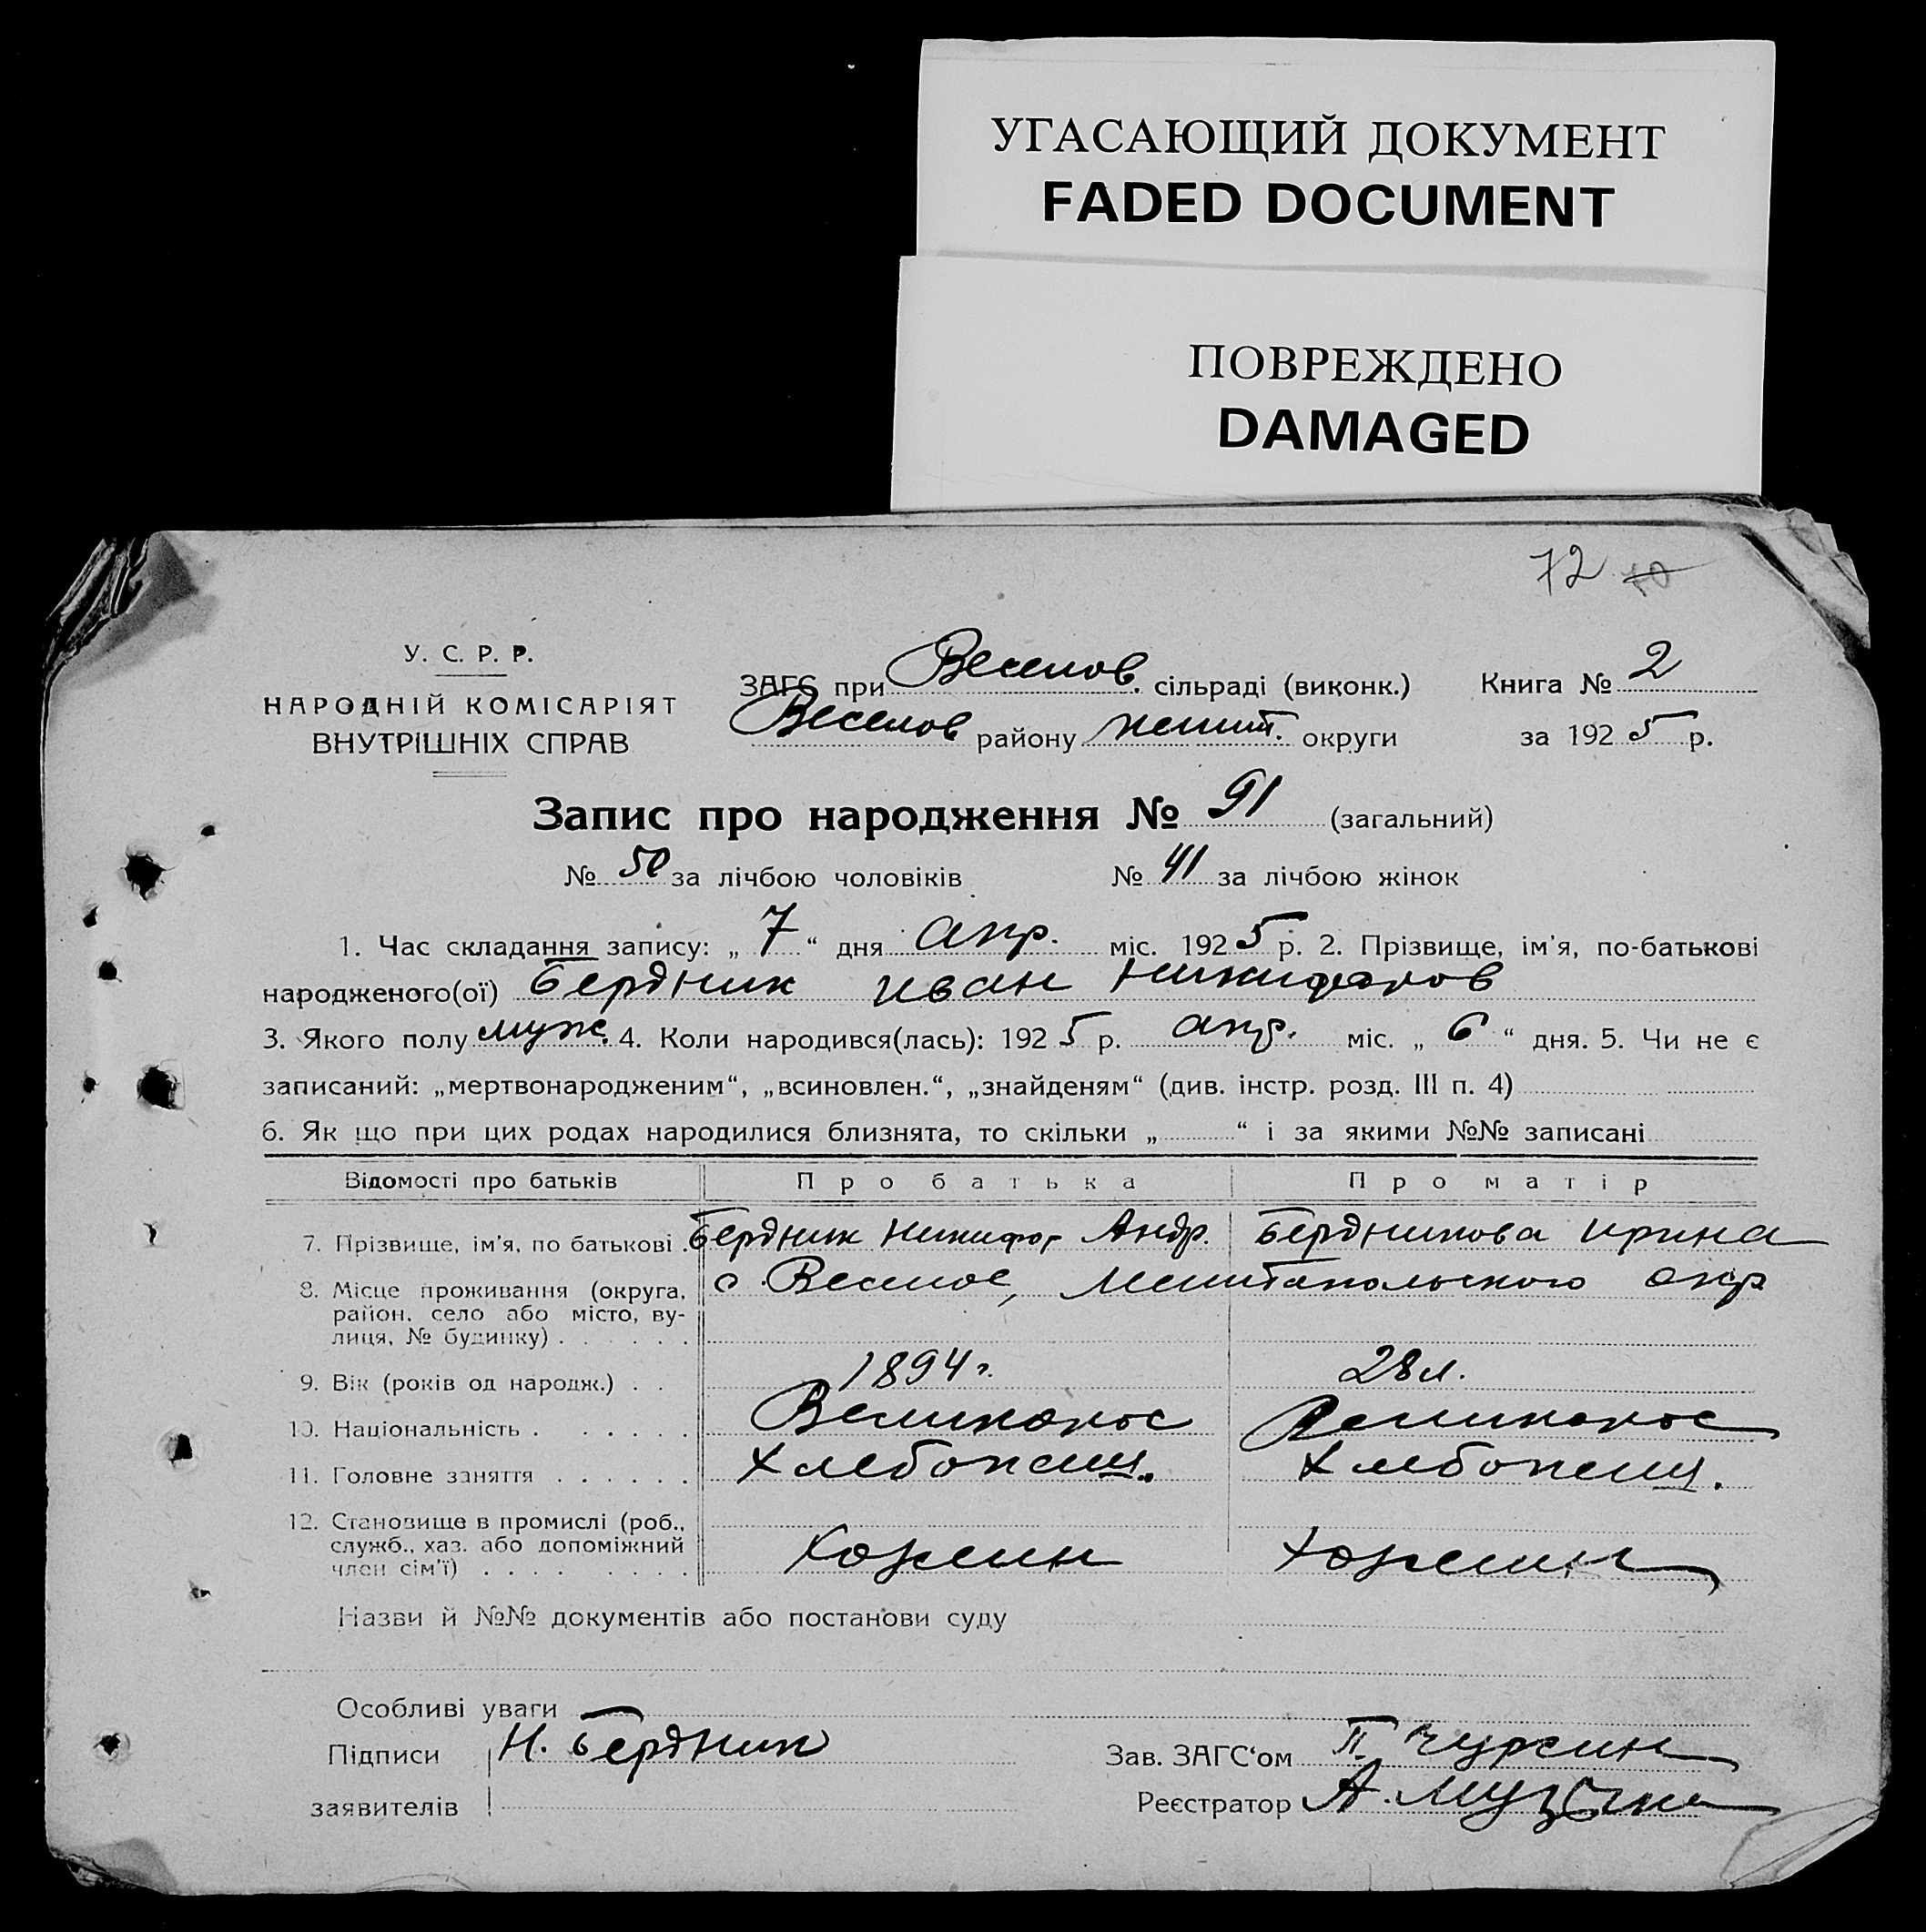 УГАСАЮЩИЙ ДОКУМЕНТ
FADED DOCUMENT
ПОВРЕЖДЕНО
DAMAGED
72 40
У. С. Р. Р.
НАРОДНІЙ КОМІСАРІЯТ
ВНУТРІШНІХ СПРАВ
ЗАГС при Веселов. сільраді (виконк.) Книга № 2
Веселов району мелит. округи за 1925 р.
Запис про народження № 91 (загальний)
№ 50 за лічбою чоловіків № 41 за лічбою жінок
1. Час складання запису: „ 7 “ дня апр. міс. 1925 р. 2. Прізвище, ім'я, по-батькові
народженого(ої) Бердник Иван Никифоров
3. Якого полу муж. 4. Коли народився(лась): 1925 р. апр. міс. „ 6 “ дня. 5. Чи не є
записаний: „мертвонародженим“, „всиновлен.“, „знайденям“ (див. інстр. розд. III п. 4)
6. Як що при цих родах народилися близнята, то скільки „ “ і за якими №№ записані
Відомості про батьків Про батька Про матір
7. Прізвище, ім'я, по батькові . Бердник Никифор Андр. Бердникова Ирина
8. Місце проживання (округа, с. Веселое, Мелитопольского окр
район, село або місто, ву-
лиця, № будинку) . . . . . .
9. Вік (років од народж.) . . 1894 г. 28 л.
10. Національність . . . . . . Великорос Великорос
11. Головне заняття . . . . . . Хлебопаш. Хлебопаш.
12. Становище в промислі (роб.,
служб., хаз. або допоміжний Хозяин Хозяин
член сім'ї) . . . . . . . .
Назви й №№ документів або постанови суду
Особливі уваги
Підписи Н. Бердник Зав. ЗАГС'ом П. Чурсин
заявителів Реєстратор А.